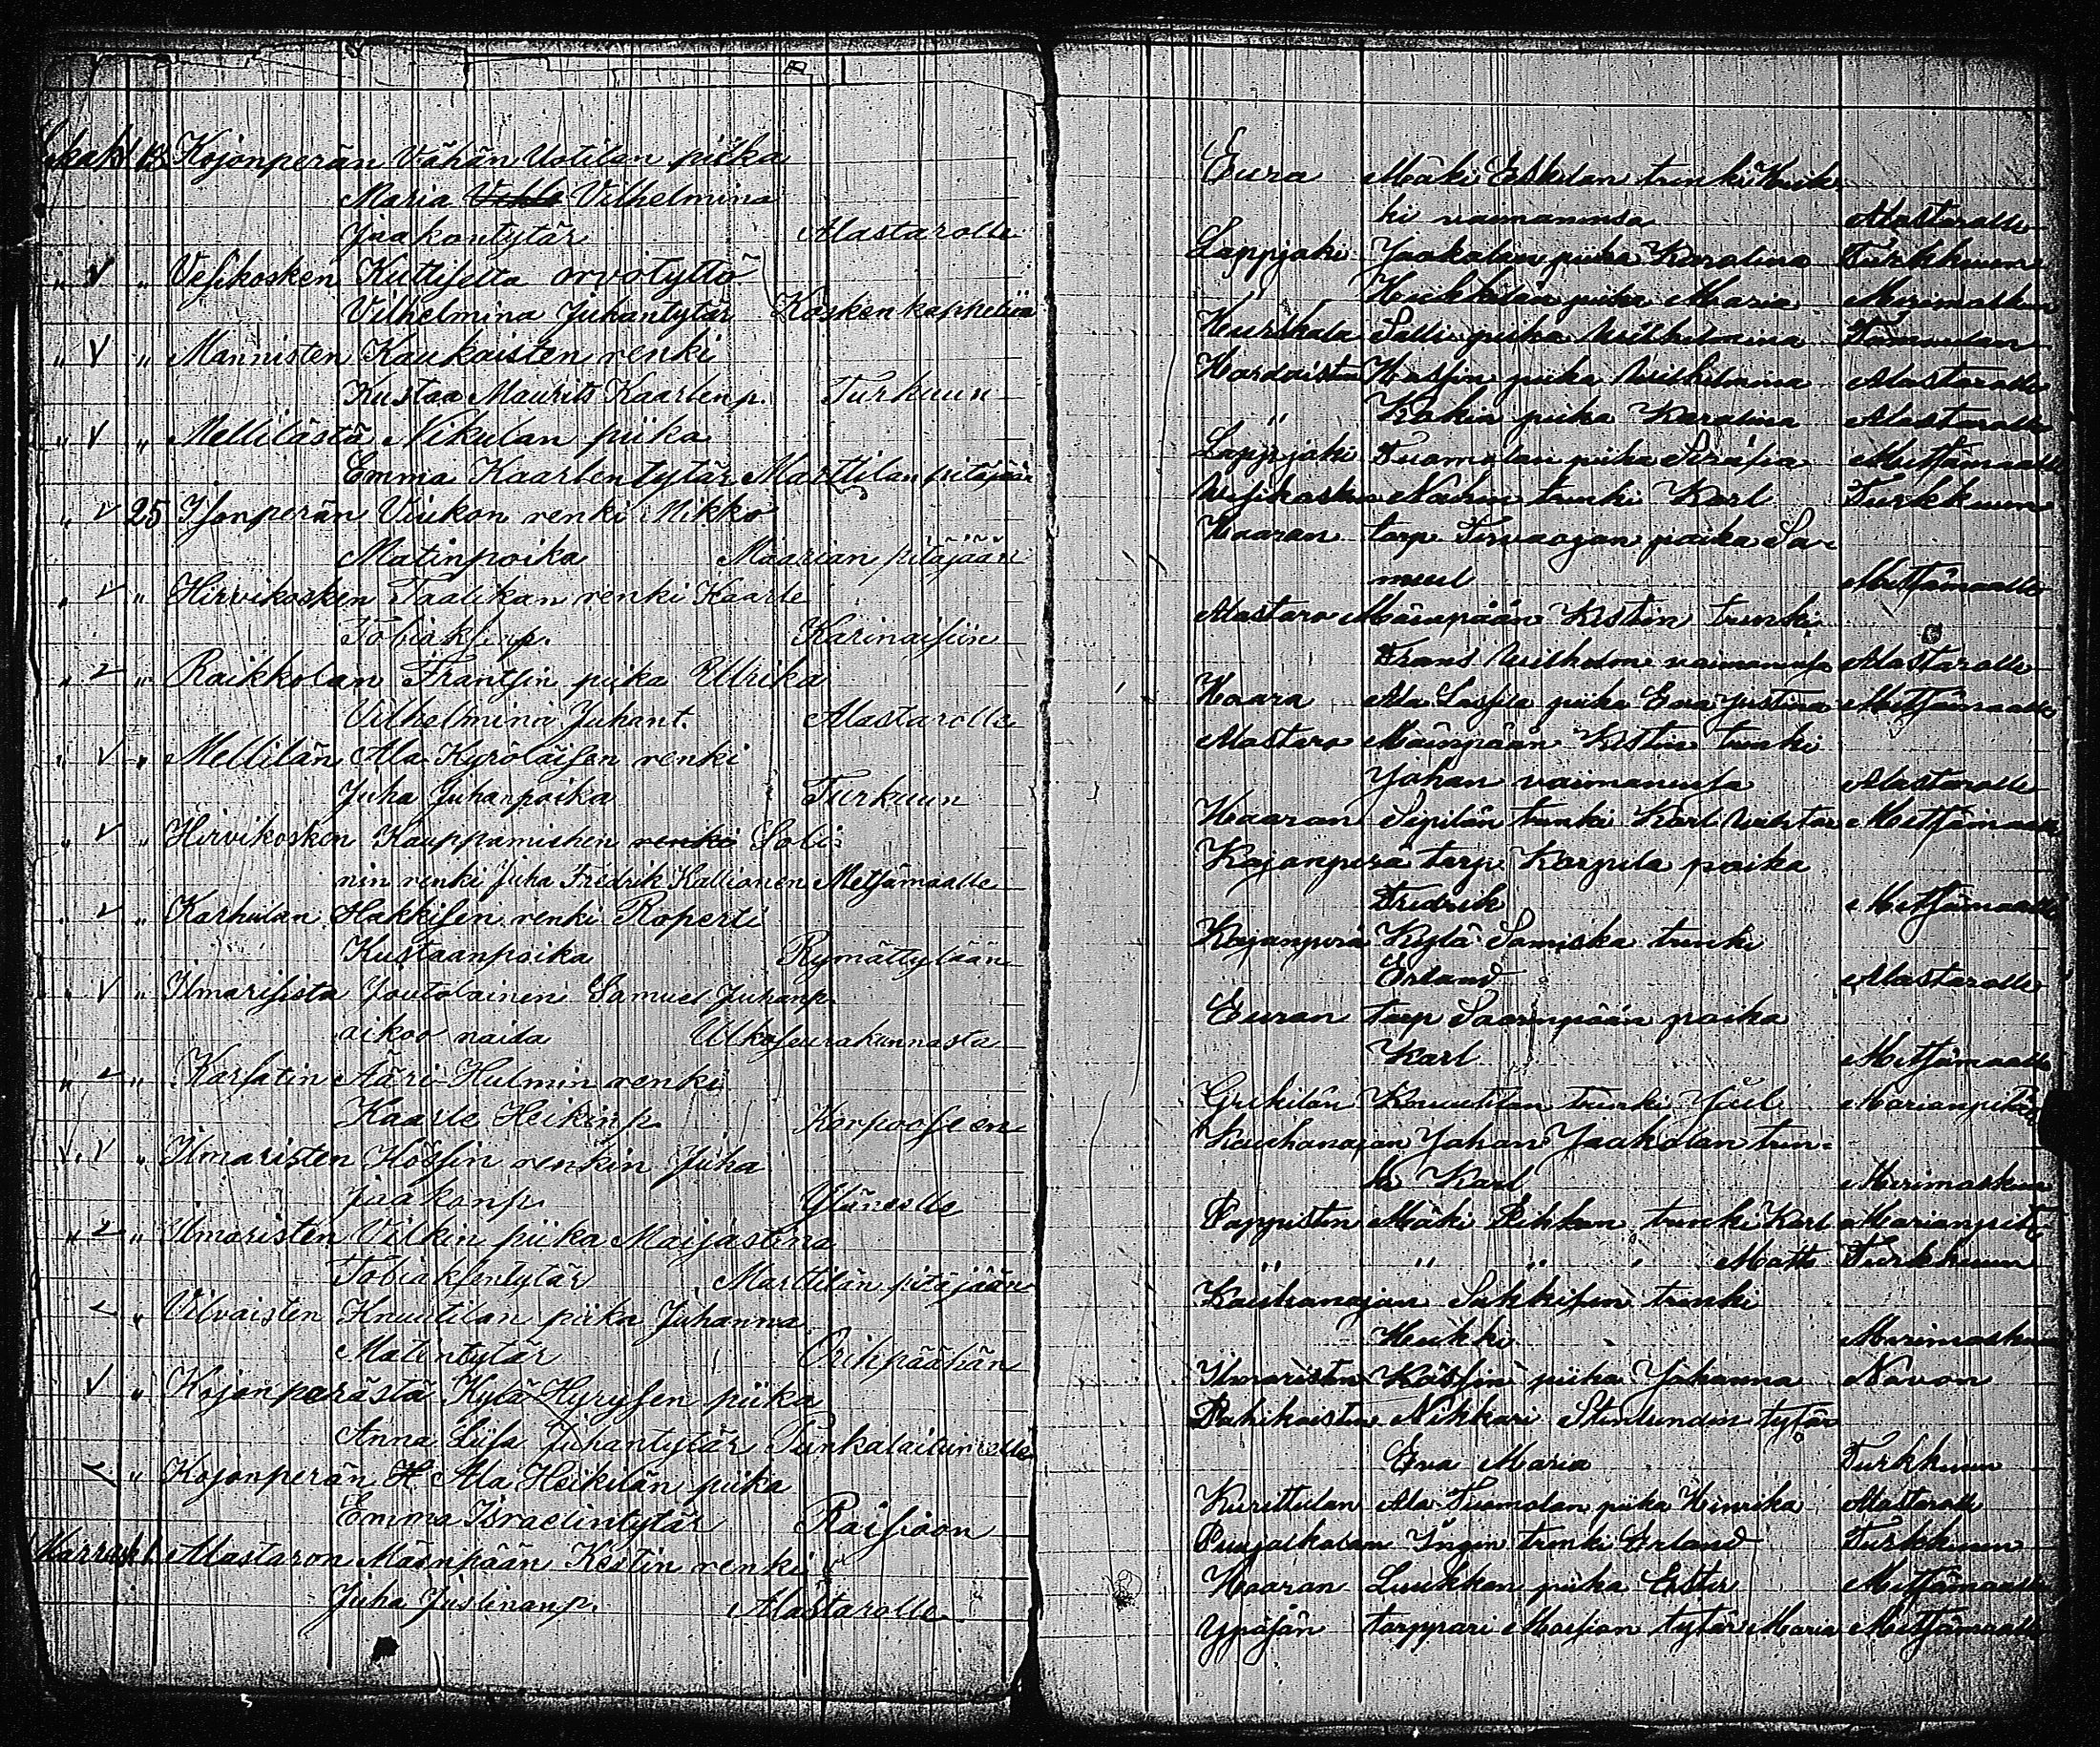 Lokak 13 Kojonperän Vähän Uotilan piika
Maria Vilhelmina
Jaakontytär Alastarolle
" V " Vesikosken Kuttiselta orvotyttö
Vilhelmina Juhantytär Kosken kappeliin
" V " Männisten Kaukaisten renki
Kustaa Maurits Kaarlenp. Turkuun
" V " Mellilästä Nikulan piika
Emma Kaarlentytär Marttilan pitäjään
" V 25 Isonperän Viukon renki Mikko
Matinpoika Maarian pitäjään
" V " Hirvikosken Taalikan renki Kaarle
Tobiaksenp. Karinaisiin
" V " Raikkolan Frantsin piika Ulrika
Vilhelmina Juhant. Alastarolle
" V " Mellilän Ala Kyröläisen renki
Juha Juhanpoika Turkuun
" V " Hirvikosken Kauppamiehen renki Soli-
nin renki Juha Fredrik Kallionen Metsämaalle
" V " Karhulan Hakkisen renki Roperti
Kustaanpoika Rymättylään
" V " Ilmarisista Joutolainen Samuel Juhanp.
aikoo naida Ulkoseurakunnasta
" V " Karsatin Ääri-Hulmin renki
Kaarle Heikinp. Korpooseen
V. V " Ilmaristen Hössin renkin Juha
Jaakonp. Yläneelle
" V " Ilmaristen Vilkin piika Maijastina
Tobiaksentytär Marttilan pitäjään
V " Vilvaisten Knuutilan piika Juhanna
Matintytär Oripäähän
V " Kojonperästä Kylä-Hyrysen piika
Anna Liisa Juhantytär Punkalaitumelle
V " Kojonperän H Ala Heikilän piika
Emma Israelintytär Raisioon
Marrask 1. Alastaron Mäenpään Kestin renki
Juha Justinanp. Alastarolle
Eura Mäki Eskolan trenki Heik-
ki vaimoninsa Alastarolle
Lappjoki Jaakolan piika Karolina Turkkuun
" Heikkilän piika Maria Merimaskun
Hurskala Salli piika Wilhelmina
Haraisten Hassin piika Wilhelmina Alastarolle
" Kokia piika Karolina Alastarolle
Lappjoki Tuomolan piika Serafia Metsämaalle
Wesikosken trenki Karl Turkkuun
Haaran torp Tervaojan poika Sa-
muel Metsämaalle
Alastaro Mäenpään Kestin trenki
Frans Wilhelm vaimoninsa Alastarolle
Haara Ala Lassila piika Eva Justina Metsämaalle
Alastaro Mäenpään Kestin trenki
Johan vaimoninsa Alastarolle
Haaran Sepilän trenki Karl Metsämaalle
Kojonperä torp Korpela poika
Fredrik Metsämaalle
Kojanperä Kylä Samiska trenki
Erland Alastarolle
Euran torp Saarenpään poika
Karl Metsämaalle
Grekilän Knuutilan trenki Juel Marianpitä
Kauhanojan Johan Jaakolan tren-
ki Karl Merimaskun
Pappisten Mäki Pihkun trenki Karl Marianpitä
" " " Matti Turkkuun
Kauhanojan Sukkisen trenki
Heikki Merimaskun
Ilmaristen Kössin piika Johanna Navon
Pahikaisten Nikkari Stenlundin tytär
Eva Maria Turkkuun
Kurittulan Ala-Tuomolan piika Henrika Alastarolle
Puujalkolan Ingin trenki Erland Turkkuun
Haaran Luukkan piika Ester Metsämaalle
Ypäjän torppari Massian tytär Maria Metsämaalle